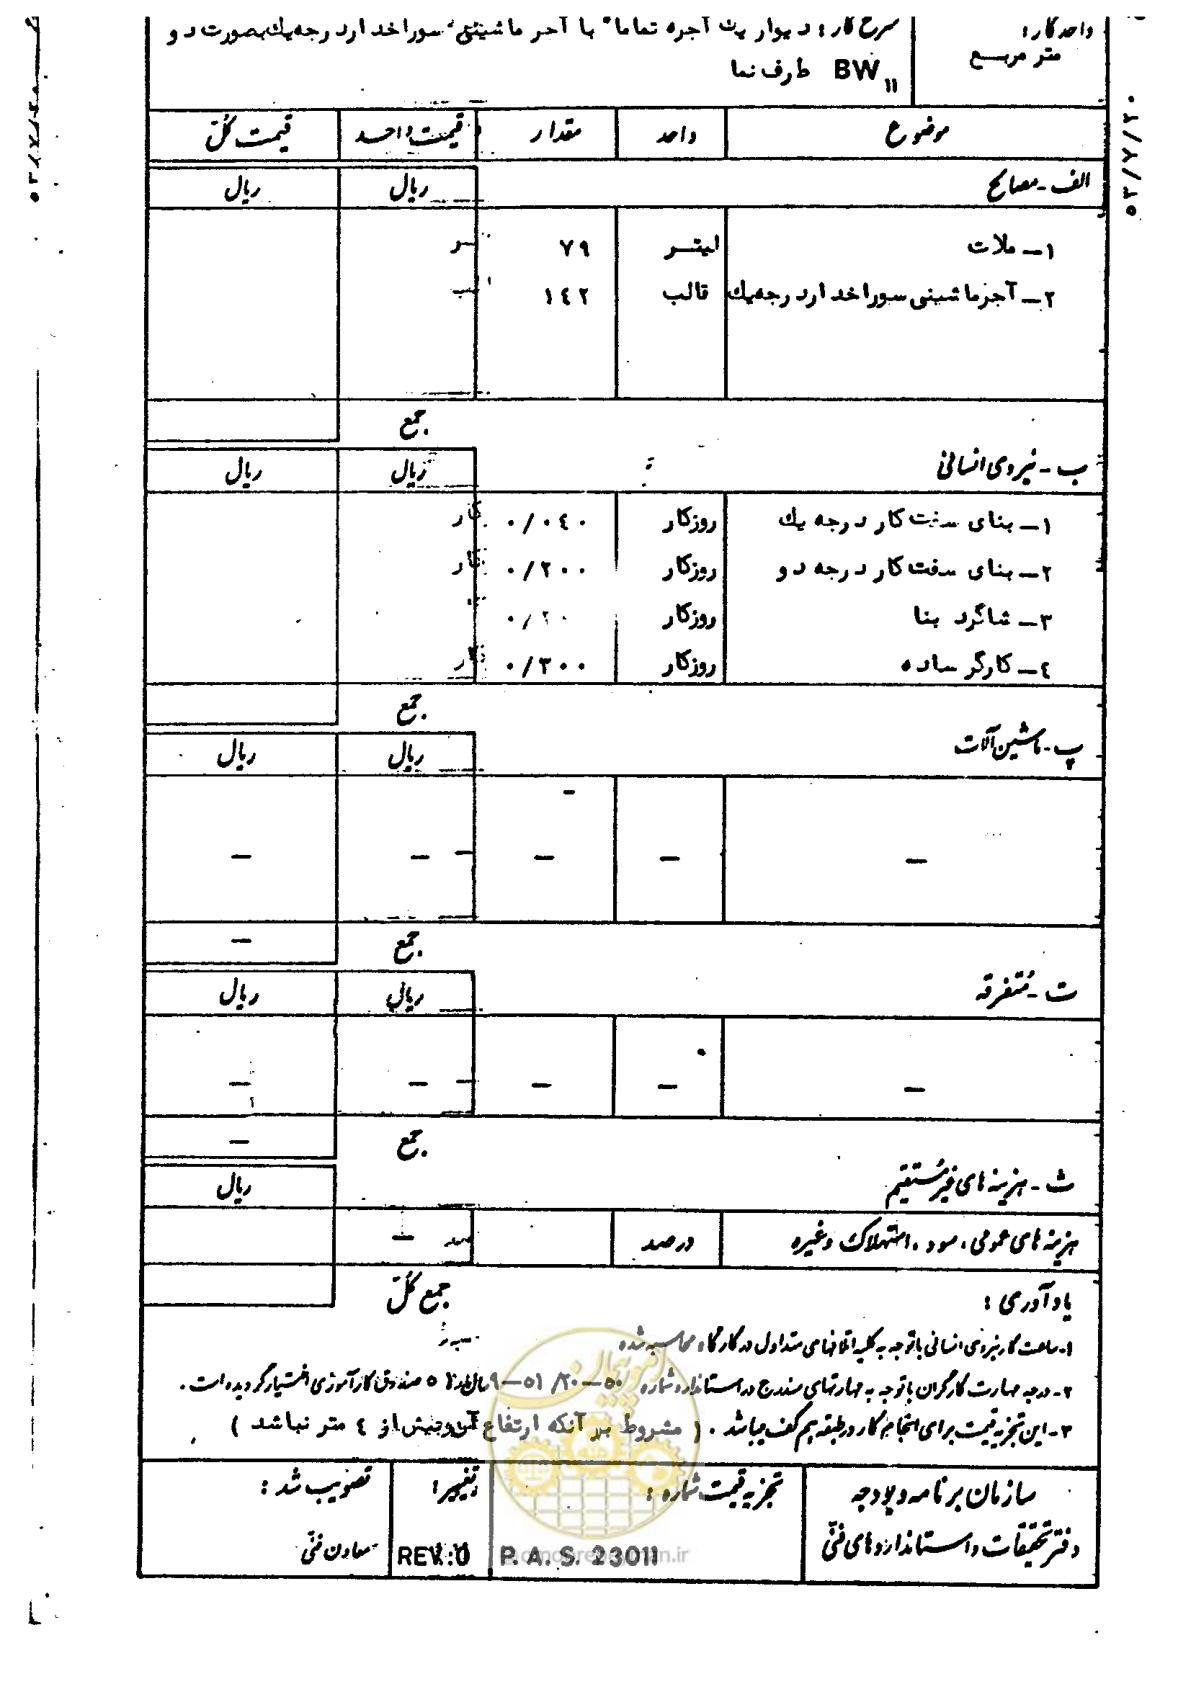 واحد کار :
متر مربع
شرح کار : دیوار یک آجره تماما" با آجر ماشینی سوراخدار درجه یک بصورت دو
طرف نما BW11
۵۳/۷/۲۰
موضوع واحد مقدار قیمت واحد قیمت کل
الف - مصالح ریال ریال
۱- ملات لیتر ۷۹
۲- آجر ماشینی سوراخدار درجه یک قالب ۱٤۲
جمع
ب - نیروی انسانی ریال ریال
۱- بنای سفت کار درجه یک روزکار ۰/۰٤۰
۲- بنای سفت کار درجه دو روزکار ۰/۲۰۰
۳- شاگرد بنا روزکار
٤- کارگر ساده روزکار ۰/۳۰۰
جمع
پ - ماشین آلات ریال ریال
— — — — —
جمع —
ت - متفرقه ریال ریال
— — — — —
جمع —
ث - هزینه های غیر مستقیم ریال
هزینه های عمومی ، سود ، استهلاک وغیره درصد —
جمع کل
یادآوری :
۱- ساعت کار نیروی انسانی با توجه به کلیه اتلافهای متداول در کارگاه محاسبه شده
۲- درجه مهارت کارگران با توجه به مهارتهای مندرج در استاندارد شماره صندوق کارآموزی اختیار گردیده است .
۳- این تجزیه قیمت برای انجام کار در طبقه هم کف میباشد . ( مشروط بر آنکه ارتفاع آن بیش از ٤ متر نباشد )
سازمان برنامه و بودجه
دفتر تحقیقات و استانداردهای فنی
تجزیه قیمت شماره :
P. A. S. 23011
تغییر :
REV.:0
تصویب شد :
معاون فنی
امور پیمان